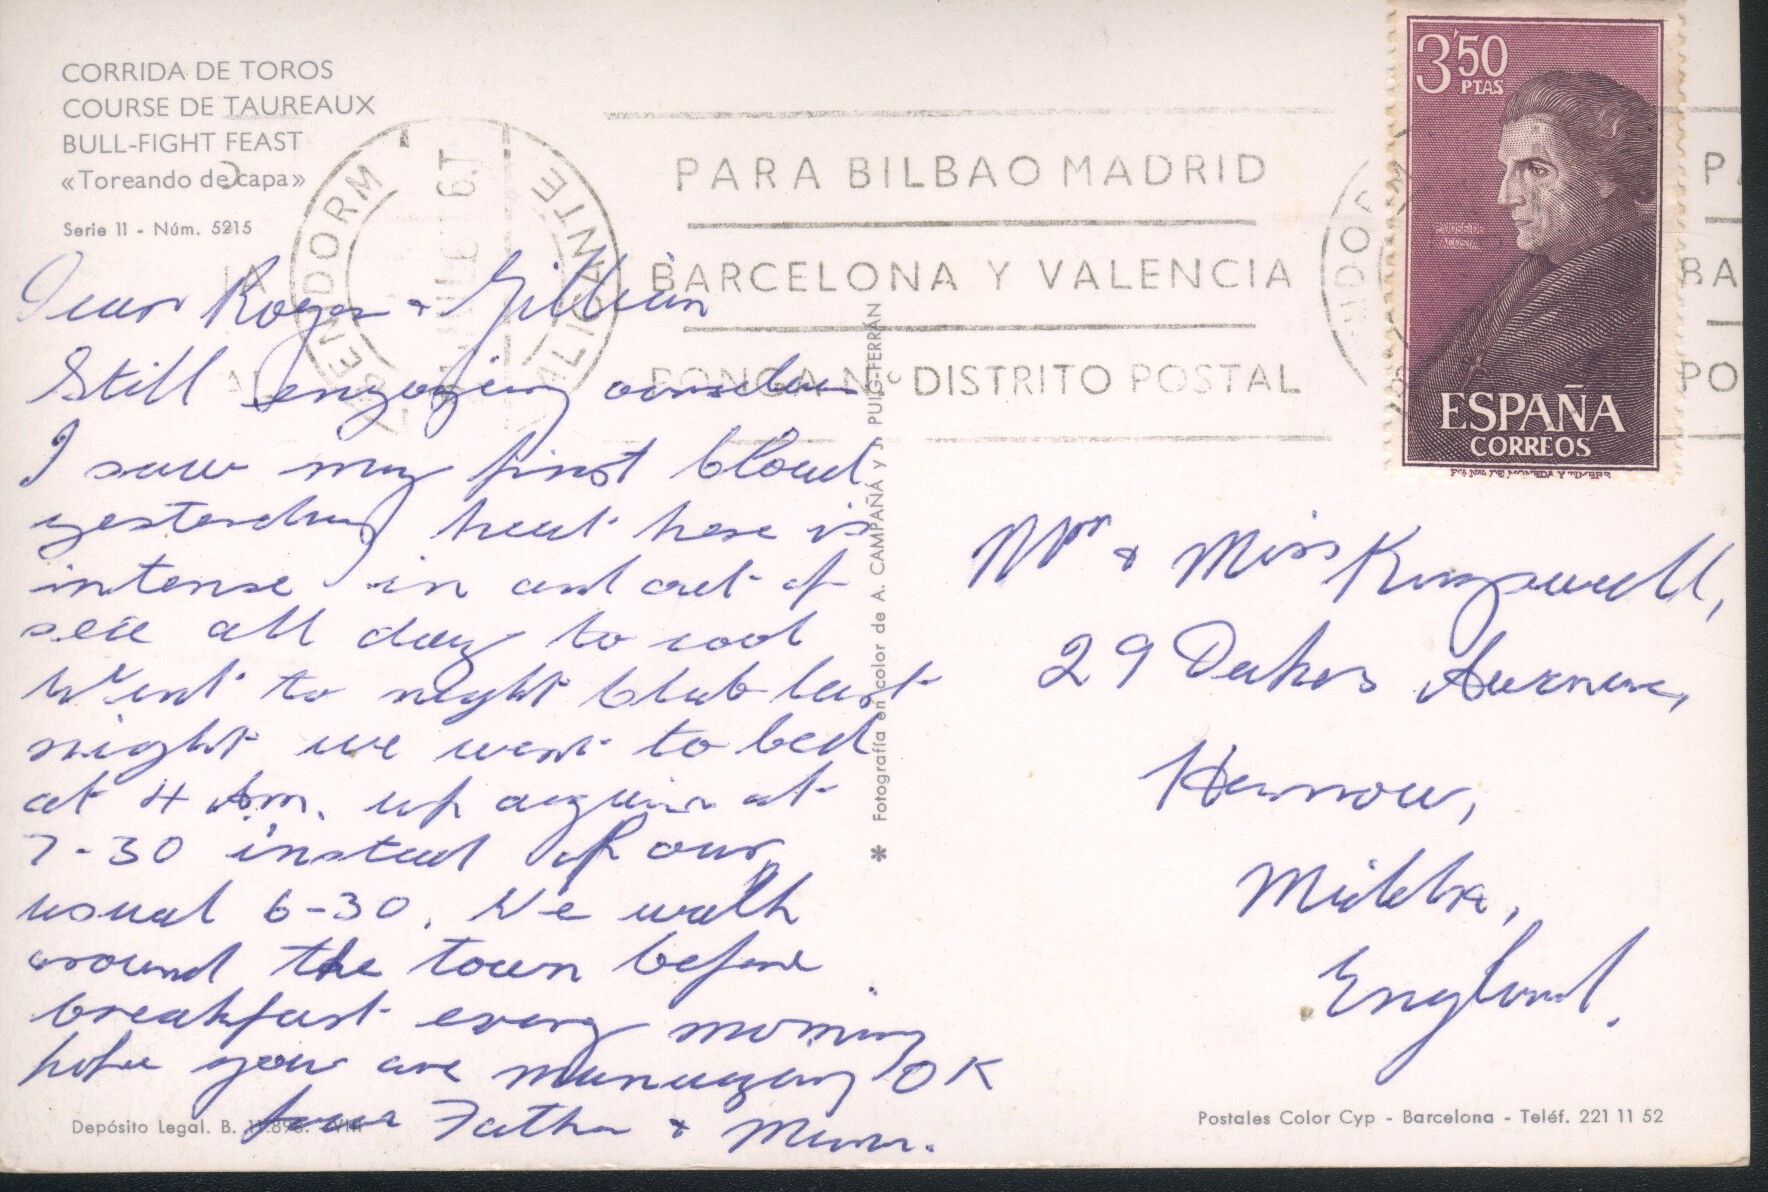 CORRIDA DE TOROS
COURSE DE TAUREAUX
BULL-FIGHT FEAST
«Toreando de capa»
Serie 11 - Núm. 5215
BENIDORM
ALICANTE
PARA BILBAO MADRID
BARCELONA Y VALENCIA
PONGA Nº DISTRITO POSTAL
3'50
PTAS
P. JOSE DE
ACOSTA
ESPAÑA
CORREOS
Dear Roger & Gillian
Still enjoying ourselves
I saw my first cloud
yesterday heat here is
intense in and out of
sea all day to cool
Went to night club last
night we went to bed
at 4 Am. up again at
7-30 instead of our
usual 6-30. We walk
around the town before
breakfast every morning
hope you are managing OK
Love Father & Mum.
Mr & Miss
29 Dukes Avenue,
Harrow,
Middx,
England.
* Fotografía en color de A. CAMPAÑÁ y J. PUIG-FERRÁN
Depósito Legal. B.
Postales Color Cyp - Barcelona - Teléf. 221 11 52